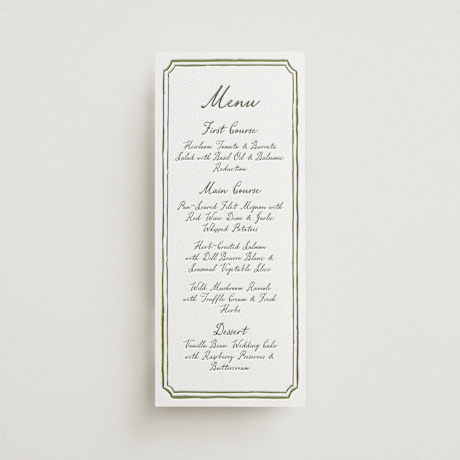 Menu
First Course
Heirloom Tomato & Burrata
Salad with Basil Oil & Balsamic
Reduction
Main Course
Pan-Seared Filet Mignon with
Red Wine Demi & Garlic
Whipped Potatoes
Herb-Crusted Salmon
with Dill Beurre Blanc &
Seasonal Vegetable Slice
Wild Mushroom Ravioli
with Truffle Cream & Fresh
Herbs
Dessert
Vanilla Bean Wedding Cake
with Raspberry Preserves &
Buttercream